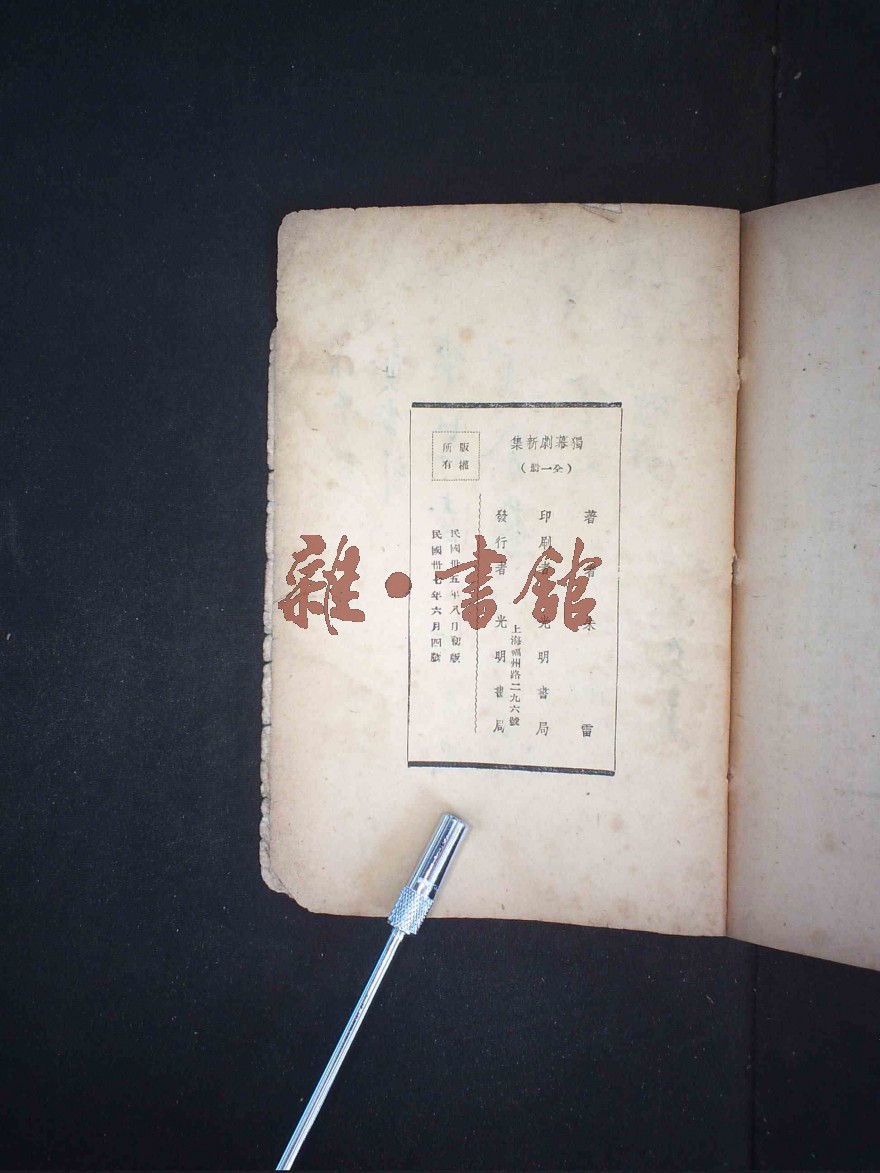 獨幕劇新集
（全一冊）
著者　朱雷
印刷者　光明書局
發行者　光明書局
上海福州路二九六號
版權
所有
民國卅五年八月初版
民國卅七年六月四版
雜·書館